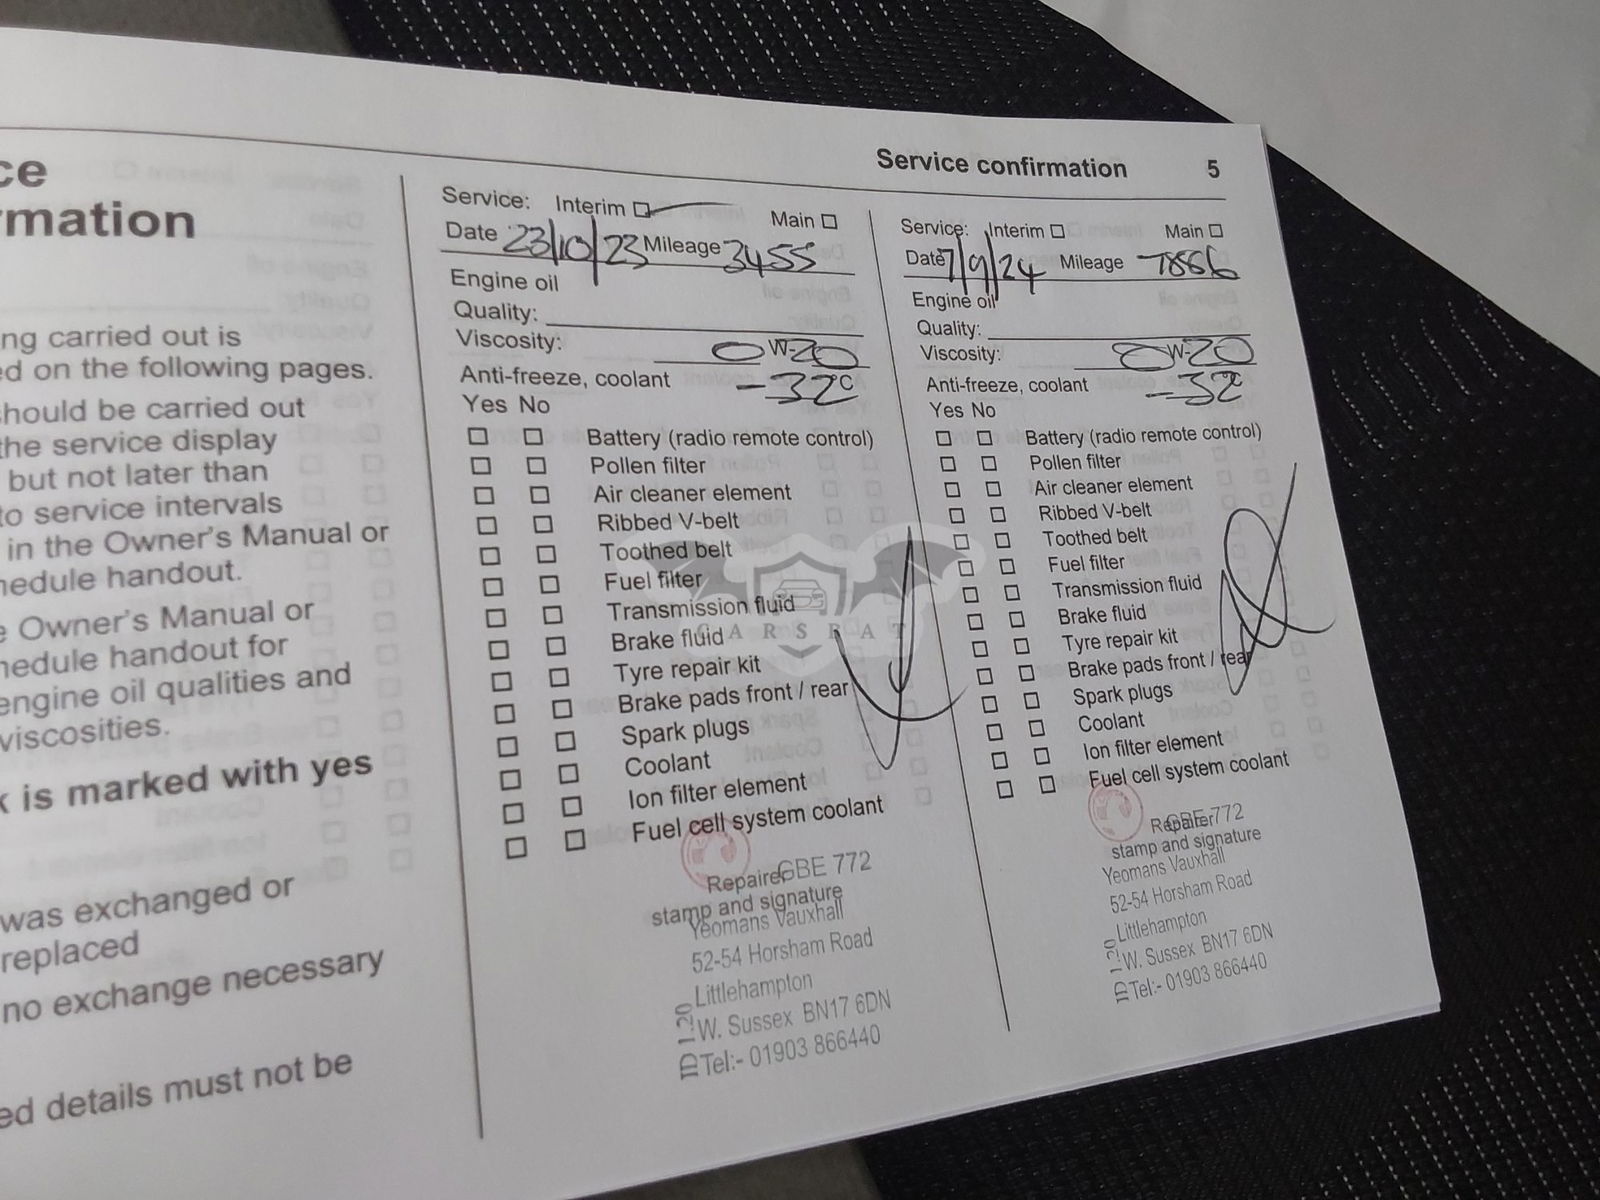 Service confirmation 5
ce
rmation
ng carried out is
ed on the following pages.
should be carried out
the service display
but not later than
to service intervals
in the Owner's Manual or
hedule handout.
e Owner's Manual or
hedule handout for
engine oil qualities and
viscosities.
k is marked with yes
was exchanged or
replaced
no exchange necessary
ed details must not be
Service: Interim Main
Date 23/10/23 Mileage 3455
Engine oil
Quality:
Viscosity: 0W-20
Anti-freeze, coolant -32°C
Yes No
Battery (radio remote control)
Pollen filter
Air cleaner element
Ribbed V-belt
Toothed belt
Fuel filter
Transmission fluid
Brake fluid
Tyre repair kit
Brake pads front / rear
Spark plugs
Coolant
Ion filter element
Fuel cell system coolant
Repairer GBE 772
stamp and signature
Yeomans Vauxhall
52-54 Horsham Road
Littlehampton
W. Sussex BN17 6DN
Tel:- 01903 866440
Service: Interim Main
Date 7/9/24 Mileage 7886
Engine oil
Quality:
Viscosity: 0W-20
Anti-freeze, coolant -32°C
Yes No
Battery (radio remote control)
Pollen filter
Air cleaner element
Ribbed V-belt
Toothed belt
Fuel filter
Transmission fluid
Brake fluid
Tyre repair kit
Brake pads front / rear
Spark plugs
Coolant
Ion filter element
Fuel cell system coolant
Repairer GBE 772
stamp and signature
Yeomans Vauxhall
52-54 Horsham Road
Littlehampton
W. Sussex BN17 6DN
Tel:- 01903 866440
CARSBAT